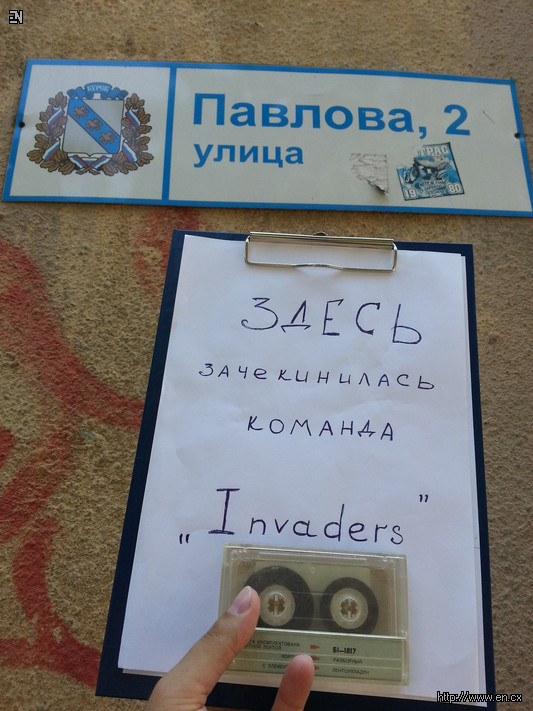 EN
КУРСК
Павлова, 2
улица
19 80
ЗДЕСЬ
ЗАЧЕКИНИЛАСЬ
КОМАНДА
„Invaders”
БI—1817
РАЗБОРНЫЙ
http://www.en.cx